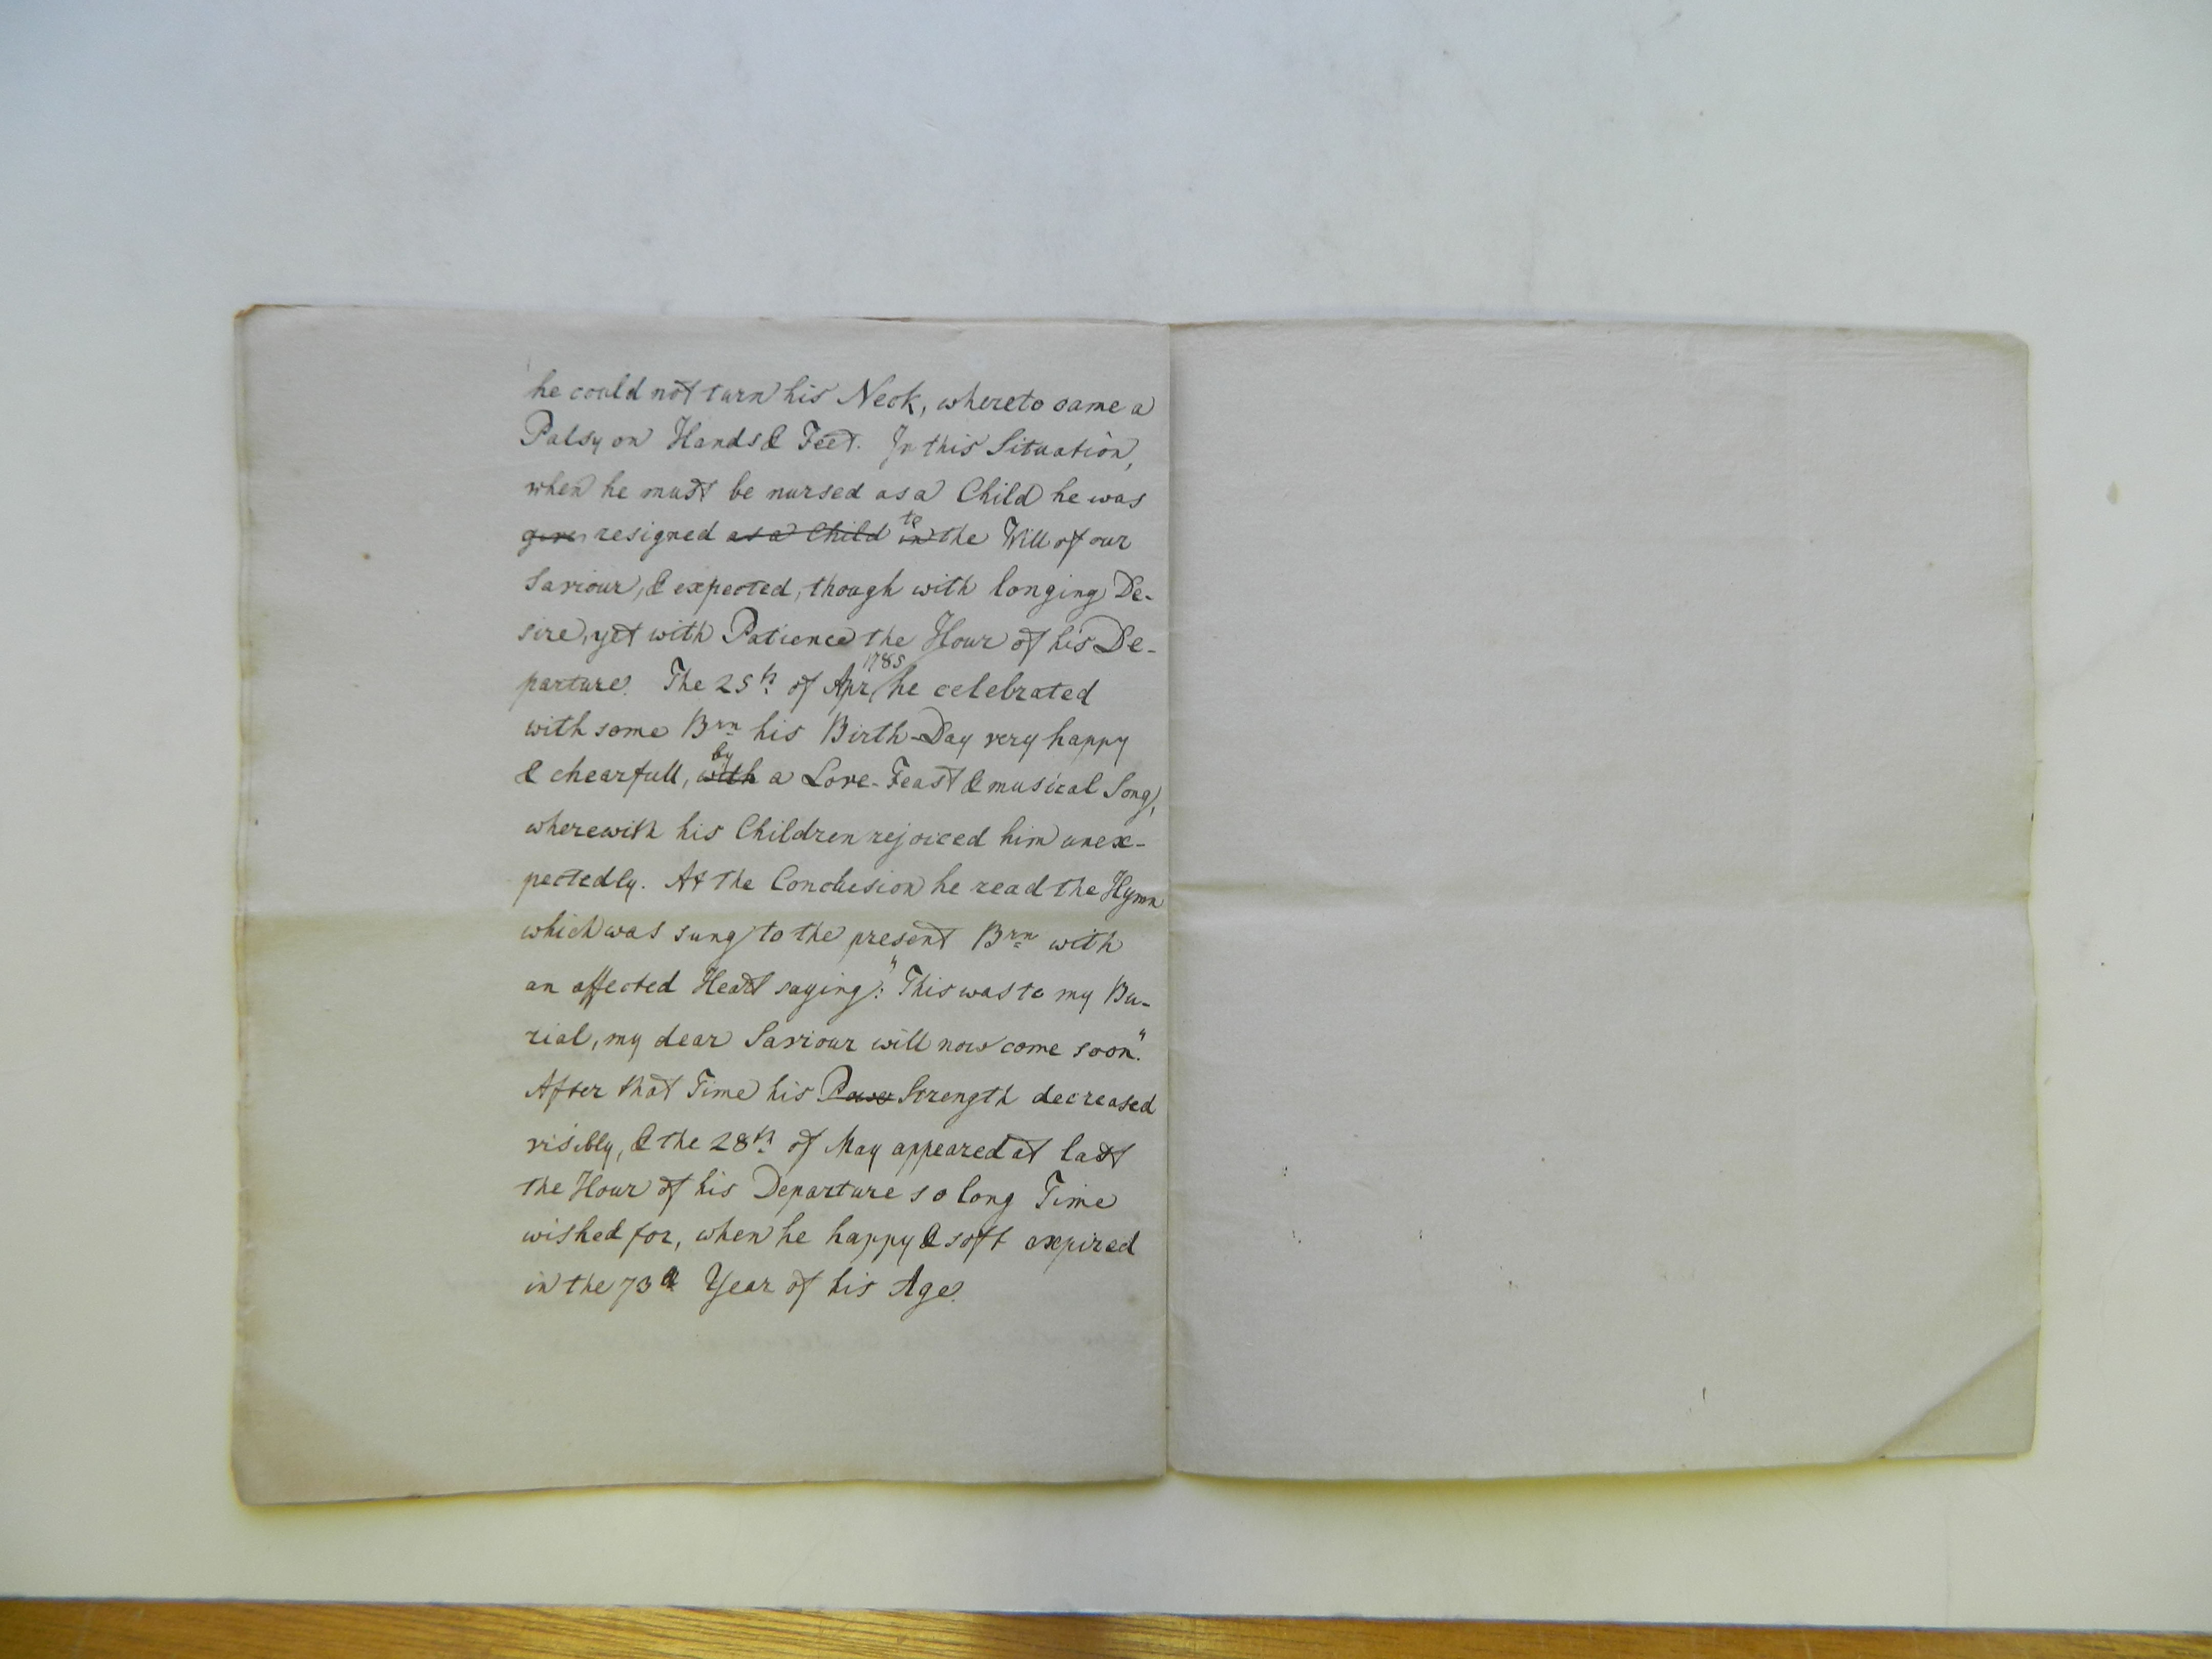 he could not turn his Neck, whereto came a
Palsy on Hands & Feet. In this Situation,
when he must be nursed as a Child he was
resigned as a Child in to the Will of our
Saviour, & expected, though with longing De-
sire, yet with Patience the Hour of his De-
parture. The 25th of Apr 1785 he celebrated
with some Brn his Birth-Day very happy
& chearfull, with by a Love-Feast & musical Song,
wherewith his Children rejoiced him unex-
pectedly. At the Conclusion he read the Hymn
which was sung to the present Brn with
an affected Heart saying: "This was to my Bu-
rial, my dear Saviour will now come soon."
After that Time his Power Strength decreased
visibly, & the 28th of May appeared at last
the Hour of his Departure so long Time
wished for, when he happy & soft expired
in the 73d Year of his Age.